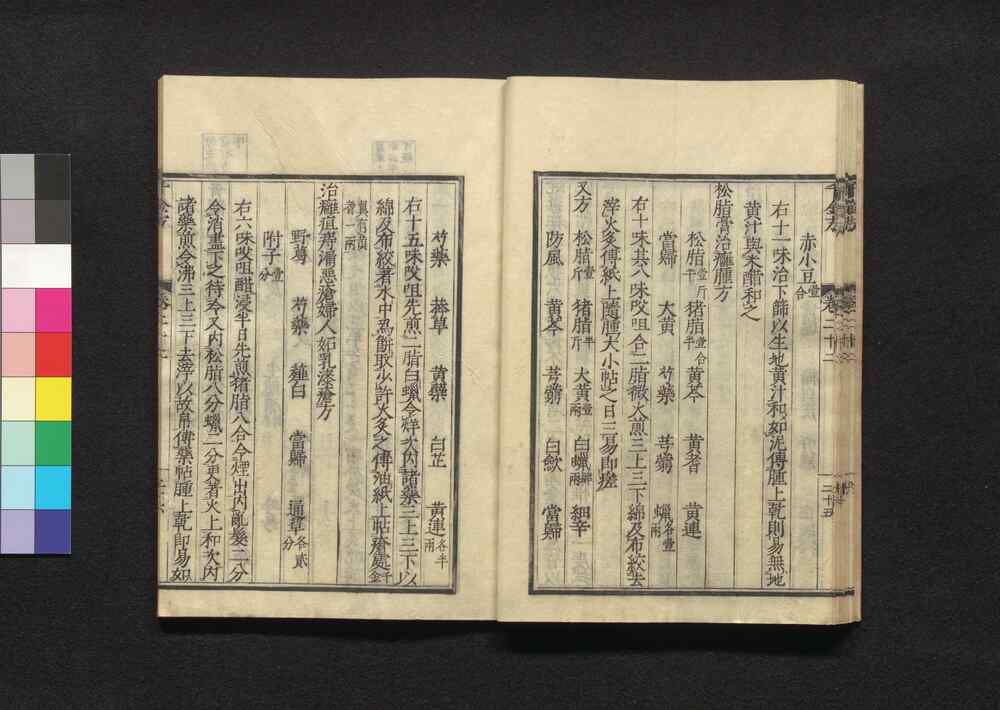 赤小豆壹合
右十一味治下篩以生地黃汁和如泥傅腫上乾則易無地
黃汁與米醋和之
松脂膏治癰腫方
松脂壹斤 猪脂壹合 黃芩 黃耆 黃連
當歸 大黃 芍藥 芎藭 蠟各壹兩
右十味其八味㕮咀合二脂微火煎三上三下綿及布絞去
滓火炙傅紙上隨腫大小帖之日三易即瘥
又方 松脂壹斤 猪脂半斤 大黃壹兩 白蠟 細辛
防風 黃芩 芎藭 白歛 當歸
芍藥 莽草 黃蘗 白芷 黃連各半兩
右十五味㕮咀先煎二脂白蠟令烊次內諸藥三上三下以
綿及布絞著水中為餅取少許火炙之傅油紙上帖瘡處千金
翼有黃耆一兩
治癰疽痔漏惡瘡婦人妬乳漆瘡方
野葛 芍藥 薤白 當歸 通草各貳分
附子壹分
右六味㕮咀醋浸半日先煎猪脂八合令煙出內亂髮二分
令消盡下之待冷又內松脂八分蠟二分更著火上和次內
諸藥煎令沸三上三下去滓以故帛傅藥帖腫上乾即易如
卷二十二
二十五